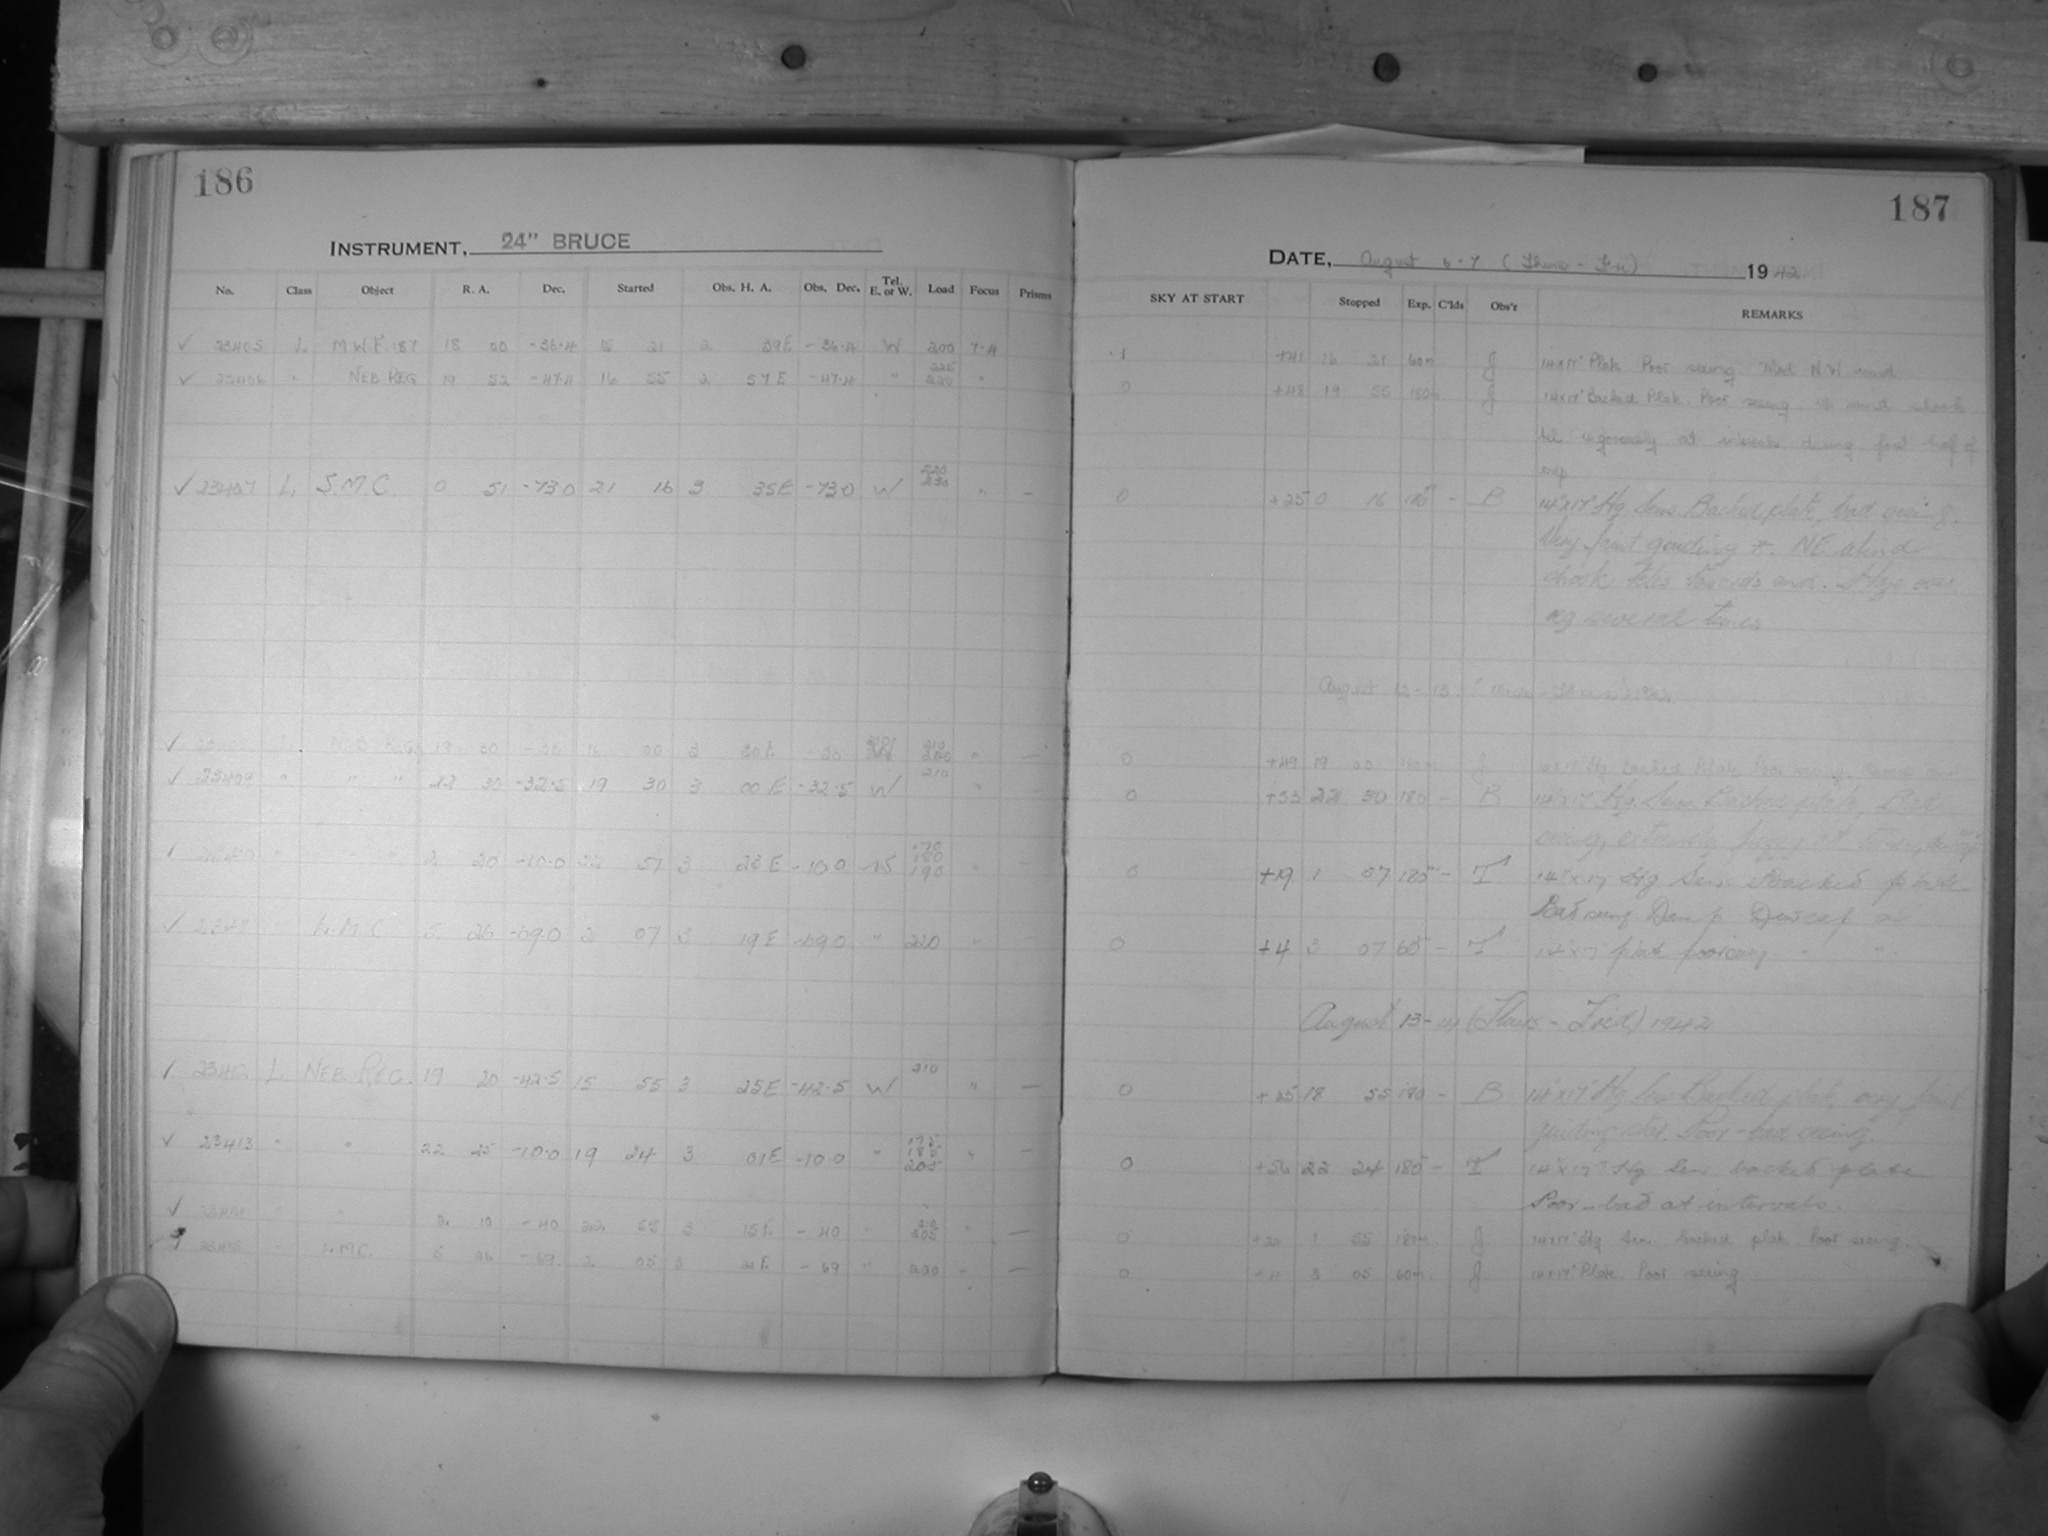 186
INSTRUMENT, 24" BRUCE
No. Class Object R. A. Dec. Started Obs. H. A. Obs. Dec. Tel. E. or W. Load Focus Prisms
✓ 23405 L M.W.F. 187 18 00 -36.4 15 21 2 39E -36.4 W 200 7.4
✓ 23406 " NEB REG 19 52 -47.4 16 55 2 57E -47.4 " 225 220 "
✓ 23407 L S.M.C. 0 51 -73.0 21 16 3 35E -73.0 W 220 230 " -
✓ NEB REG 19 30 -30 16 00 3 30E 30 210 200 " -
✓ 23409 " " " 22 30 -32.5 19 30 3 00E -32.5 W 210 "
2 20 -10.0 22 57 3 23E -10.0 W 170 180 190 "
✓ L.M.C 5 26 -69.0 2 07 3 19E -69.0 " 220 "
23412 L NEB REG. 19 20 -42.5 15 55 3 25E -42.5 W 210 " -
✓ 23413 " " 22 25 -10.0 19 24 3 01E -10.0 " 175 185 205 "
✓ 23414 " " 2 10 -40 22 55 3 15E -40 " 205 " -
23415 " L.M.C. 5 26 -69 2 05 3 21E -69 " 220 " -
187
DATE, August 6-7 (Thurs - Fri) 1942
SKY AT START Stopped Exp. C'lds Obs'r REMARKS
1 +41 16 21 60m J 14x17" Plate Poor seeing Mod N.W. wind
0 +48 19 55 180m J 14x17" Backed Plate. Poor seeing. wind shook
tel vigorously at intervals during first half of
exp
0 +25 0 16 180 - B 14"x17" Hg Sens Backed plate, bad seeing.
Very faint guiding *. NE wind
shook tels towards end.
several times
August 12-13 1942
0 +49 19 00 180m J 14x17" Hg backed Plate Poor seeing.
0 +53 22 30 180 - B 14"x17" Hg. Sens Backed plate, Bad
seeing, extremely fuzzy at times,
0 +19 1 57 180 - T 14"x17" Hg Sens Backed plate
Bad seeing Damp Dewcap on
0 +4 3 07 60 - T 14"x17" plate poor seeing " "
August 13-14 (Thurs - Frid) 1942
0 +45 18 55 180 - B 14"x17" Hg Sens Backed plate, very faint
guiding star. Poor-bad seeing.
0 +56 22 24 180 - T 14"x17" Hg Sens backed plate
Poor - bad at intervals.
0 +20 1 55 180m. J 14x17" Hg Sens backed plate. Poor seeing.
0 3 05 60m. J. 14x17" Plate. Poor seeing